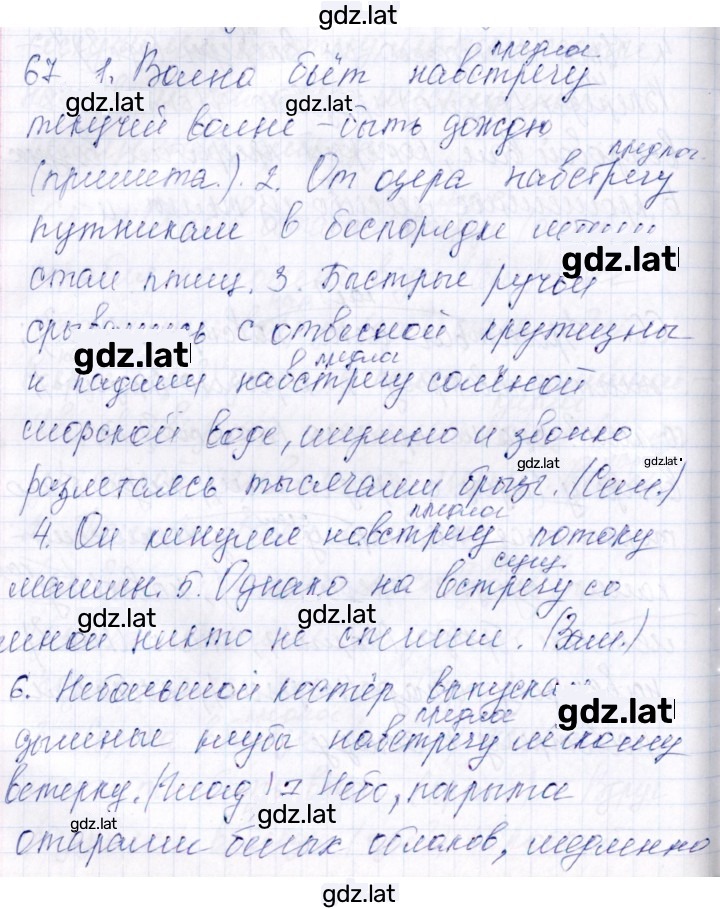 gdz.lat
предлог
67 1. Волна бьёт навстречу
gdz.lat gdz.lat
текучей волне – быть дождю
предлог
(примета.). 2. От озера навстречу
путникам в беспорядке
gdz.lat
стаи птиц. 3. Быстрые ручьи
с отвесной крутизны
gdz.lat предлог
и падали навстречу солёной
морской воде, шурша и звонко
gdz.lat gdz.lat
разлетаясь тысячами брызг. (Сем.)
предлог
4. Он кинулся навстречу потоку
сущ.
машин. 5. Однако на встречу со
gdz.lat gdz.lat
мной никто не спешил. (Зам.)
6. Небольшой костёр
предлог gdz.lat
дымные клубы навстречу лёгкому
ветерку. (Глад.) 7 Небо, покрытое
gdz.lat gdz.lat
отарами белых облаков, медленно
gdz.lat